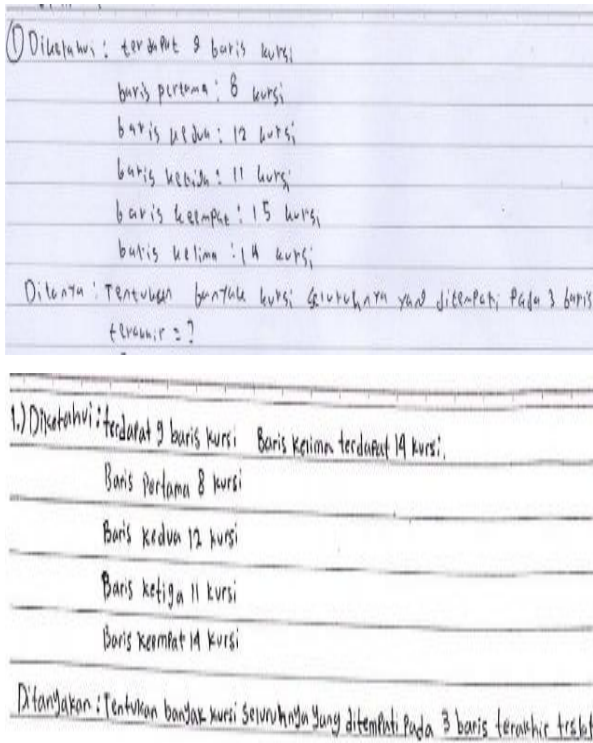 ① Diketahui : terdapat 9 baris kursi
baris pertama : 8 kursi
baris kedua : 12 kursi
baris ketiga : 11 kursi
baris keempat : 15 kursi
baris kelima : 14 kursi
Ditanya : Tentukan banyak kursi seluruhnya yang ditempati Pada 3 baris
terakhir = ?
1.) Diketahui : terdapat 9 baris kursi Baris kelima terdapat 14 kursi.
Baris Pertama 8 kursi
Baris kedua 12 kursi
Baris ketiga 11 kursi
Baris keempat 14 kursi
Ditanyakan : Tentukan banyak kursi seluruhnya yang ditempati Pada 3 baris terakhir